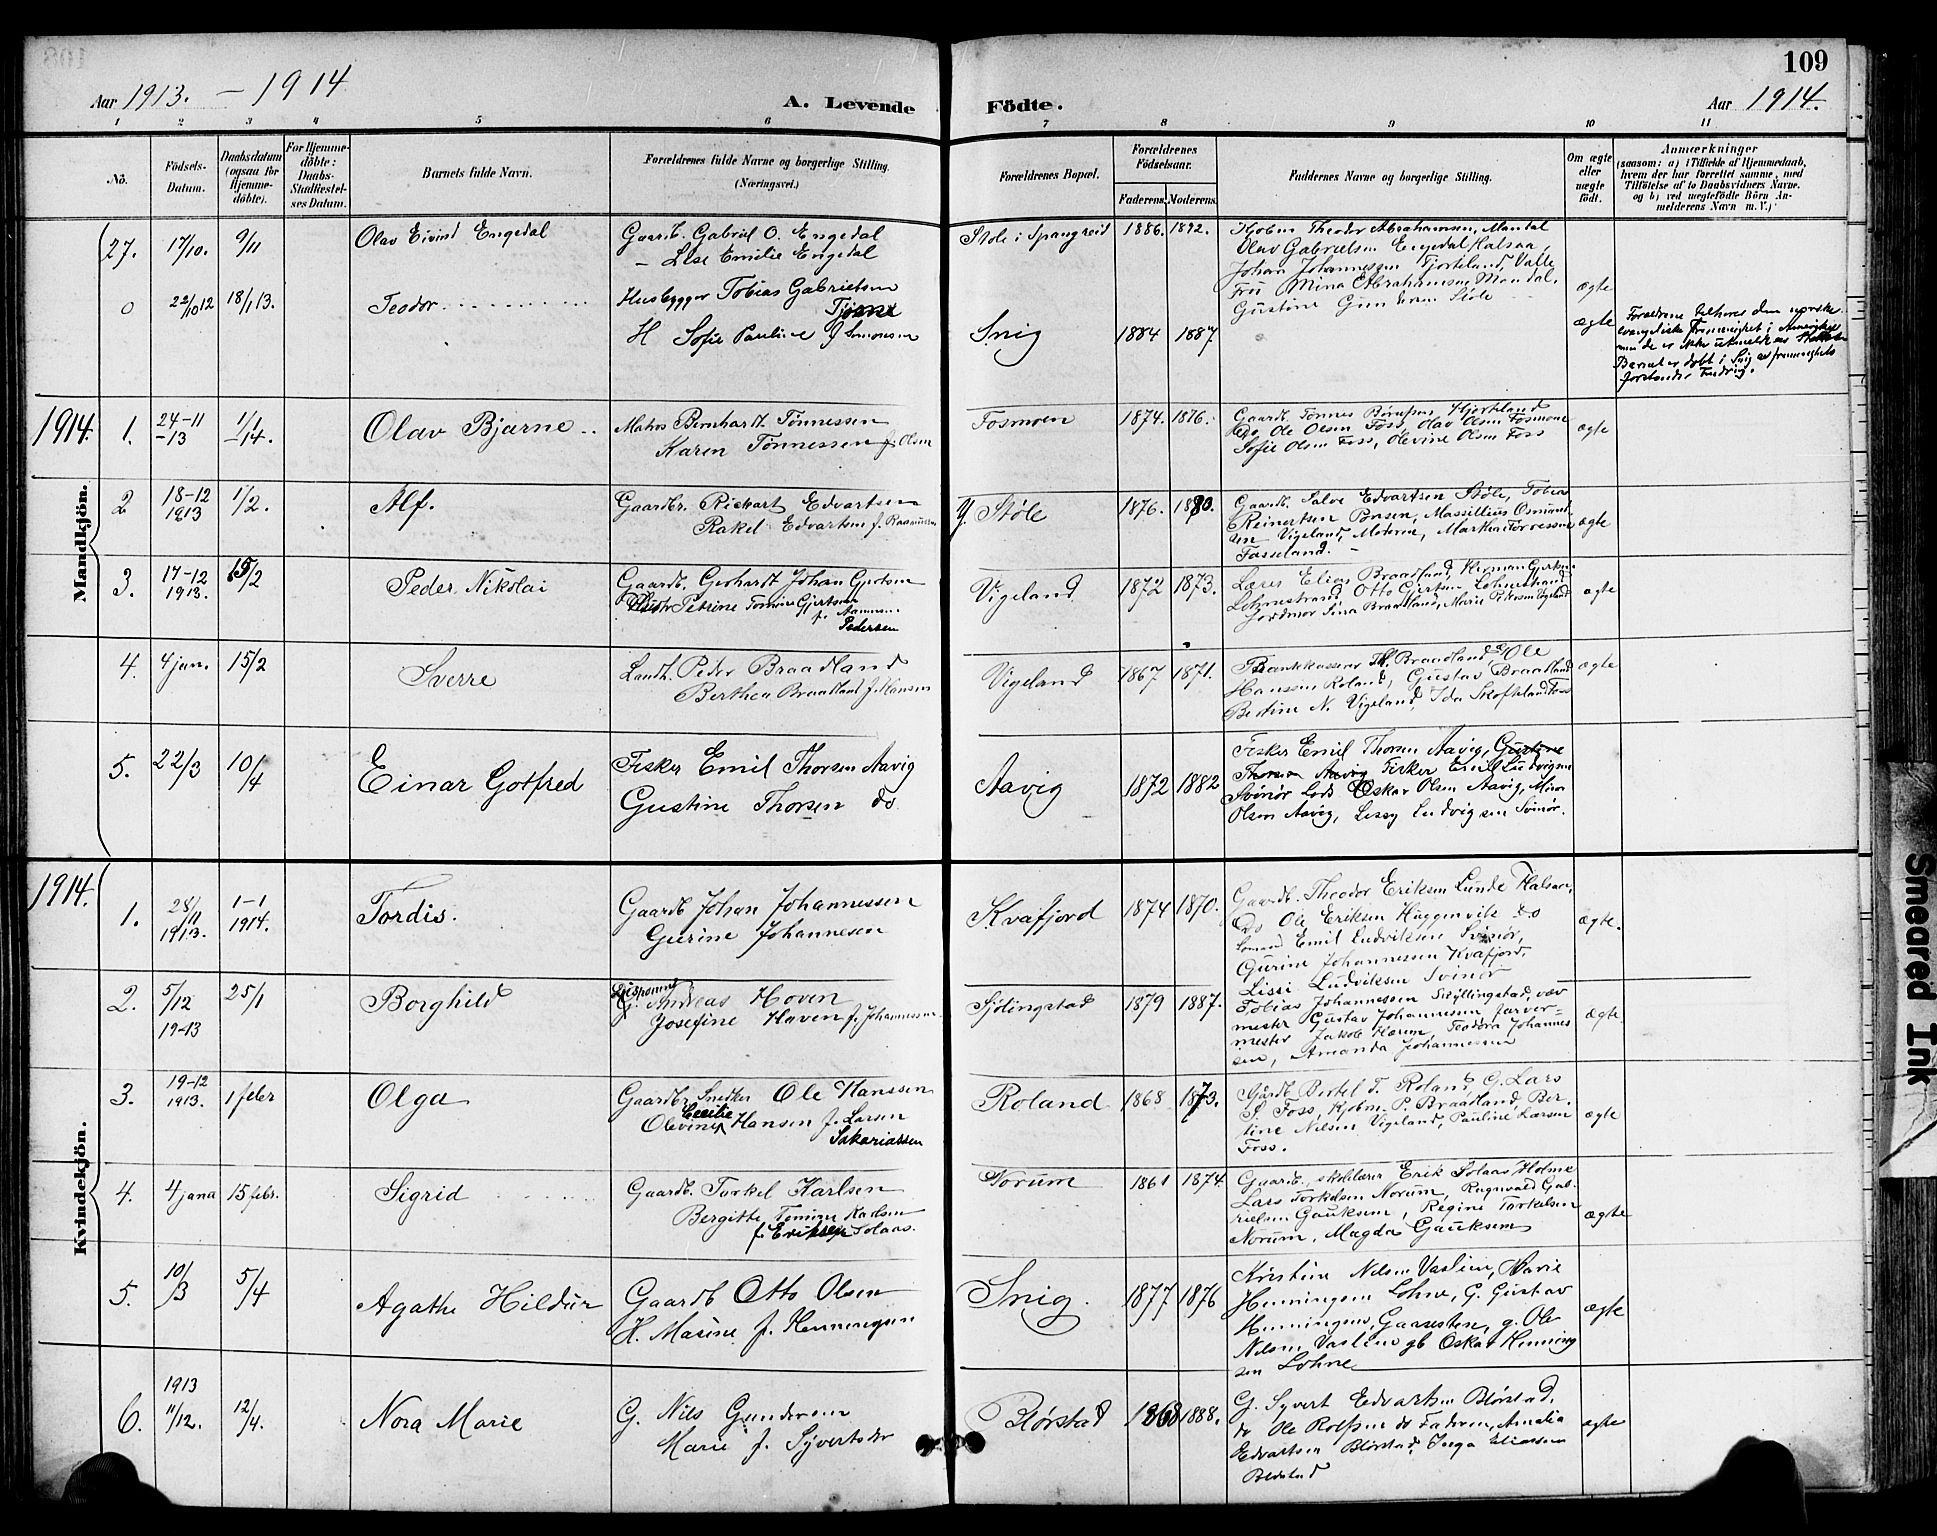 109
Aar 1913. – 1914
A. Levende Födte.
Aar 1914.
1 2 3 4 5 6 7 8 9 10 11
No.
Födsels-Datum.
Daabsdatum (ogsaa for Hjemmedöbte).
For Hjemmedöbte: Daabs-Stadfæstelses Datum.
Barnets fulde Navn.
Forældrenes fulde Navne og borgerlige Stilling. (Næringsvei.)
Forældrenes Bopæl.
Forældrenes Födselsaar.
Faderens. Moderens.
Faddernes Navne og borgerlige Stilling.
Om ægte eller uægte födt.
Anmærkninger
(saasom: a) i Tilfælde af Hjemmedaab,
hvem der har forrettet samme, med
Tilföielse af to Daabsvidners Navne.
og b) ved uegtefödte Börn An-
melderens Navn m. V.)
27. 17/10. 9/11 Olav Eivind Engedal
Gaardb. Gabriel O. Engedal
– Lise Emilie Engedal
Støle i Spangreid 1886. 1892.
Theodor Abrahamsen, Mandal
Olav Gabrielsen Engedal Halsaa,
Johan Johannessen Fjorteland, Valle
Fru Mina Abrahamsen Mandal,
Gustine Gundersen Støle
ægte
0 22/10 12 18/1 13. Teodor
Husbygger Tobias Gabrielsen
Tjørne
H Sofie Pauline f Simonsen
Snig 1884 1887
ægte
Forældrene tilhører den norske
evangeliske frimenighet i Amerika
men de er ikke utmeldt av Statskirken
Barnet er døbt i Snig av frimenighets
forstander Fredrig.
Mandkjön.
1914. 1. 24-11 -13 1/1 -14. Olav Bjarne
Matros Bernhardt Tønnessen
Karen Tønnessen f. Olsen
Fosmoen 1874. 1876.
Gaardb. Tønnes Børufsen Hjorteland
Do. Ole Olsen Foss, Olav Olsen Fosmone
Sofie Olsen Foss, Olevine Olsen Foss
ægte
2 18-12 1913 1/2. Alf.
Gaardbr. Rickart Edvartsen
Rakel Edvartsen f. Rasmussen
Y. Støle 1876. 1880.
Gaardb. Salve Edvartsen Støle, Tobias
Reinertsen
Vigeland, Moderen,
Fasseland.
ægte
3. 17-12 1913. 15/2 Peder Nikolai
Gaardb. Gerhardt Johan Gjertsen
Hustr Petrine Tomine Gjertsen
f. Aamun...
Pedersen
Vigeland 1872 1873.
Lærer Elias Braadland, Herman Gjertsen
Lohnestrand, Otto Gjertsen Lohnestrand
Jordmor Sina Braadland, Marie Petersen Vigeland
ægte
4. 4 jan. 15/2 Sverre
Landh. Peder Braadland
Berthea Braadland f. Hansen
Vigeland 1867 1871.
Bankkasserer Th. Braadland, Ole
Hanssen Roland, Gustav Braadland
Bertine N. Vigeland, Ida Skofteland Foss
ægte
5. 22/3 10/4 Einar Gotfred
Fisker Emil Thorsen Aavig
Gustine Thorsen do
Aavig 1872 1882
Fisker Emil Thorsen Aavig, Gustine
Thorsen Aavig Fisker Emil Ludvigsen
Svinør Lods Oskar Olsen Aavig, Mina
Olsen Aavig, Lissy Ludvigsen Svinør.
Kvindekjön.
1914. 1. 28/11 1913. 1-1 1914. Tordis.
Gaardb Johan Johannessen
Gurine Johannesen
Kvafjord 1874 1870.
Gaardb. Theodor Eriksen Lunde Halsaa,
Do Ole Eriksen Huggenvik do
Emil Ludviksen Svinør,
Gurine Johannessen Kvafjord,
Lissi Ludviksen Svinør
ægte.
2. 5/12 19-13 25/1 Borghild
Disponent
Andreas Hoven
Josefine Haven f. Johannessen
Sjölingstad 1879 1887.
Tobias Johannessen Skyllingstad, væv
mester Gustav Johannessen farver-
mester Jakob Harum, Teodora Johannes
sen, Amanda Johannessen
ægte
3. 19-12 1913. 1 febr Olga
Gaardbr Snedker Ole Hanssen
Cecilie
Olevine Hansen f. Larsen
Sakariassen
Roland 1868 1873.
Gårdb. Bertel T. Roland, G. Lars
S. Foss, Kjøbm. P. Braadland, Ber-
tine Nilsen Vigeland, Pauline Larsen
Foss.
ægte
4. 4 jana 15 febr. Sigrid
Gaardb. Torkel Karlsen
Bergitte Tomine Karlsen
f. Eriksen Solaas.
Norum 1861 1874.
Gaardb. skolelærer Erik Solaas Holme
Lars Torkelsen Norum, Ragnvald Gab-
rielsen Gauksem, Regine Torkelsen
Norum, Magda Gauksem
ægte
5. 10/3 5/4 Agathe Hildur
Gaardb Otto Olsen
H. Marine f. Henningsen
Snig. 1877 1876
Kristine Nilsen Vaslien, Marie
Henningsen Lohne, G. Gustav
Henningsen, Gaasestein, g. Ole
Nilsen Vaslien gb Oskar Henning
sen Lohne
ægte
6. 1913 11/12. 12/4. Nora Marie
G. Nils Gundersen
Marie f. Syvertsdr
Blørstad 1868 1888.
G. Syvert Edvartsen Blørstad,
do Ole Rolfsen do Faderen, Amalia
Edvartsen Blørstad, Inga Eliassen
Blørstad
ægte
Smeared Ink